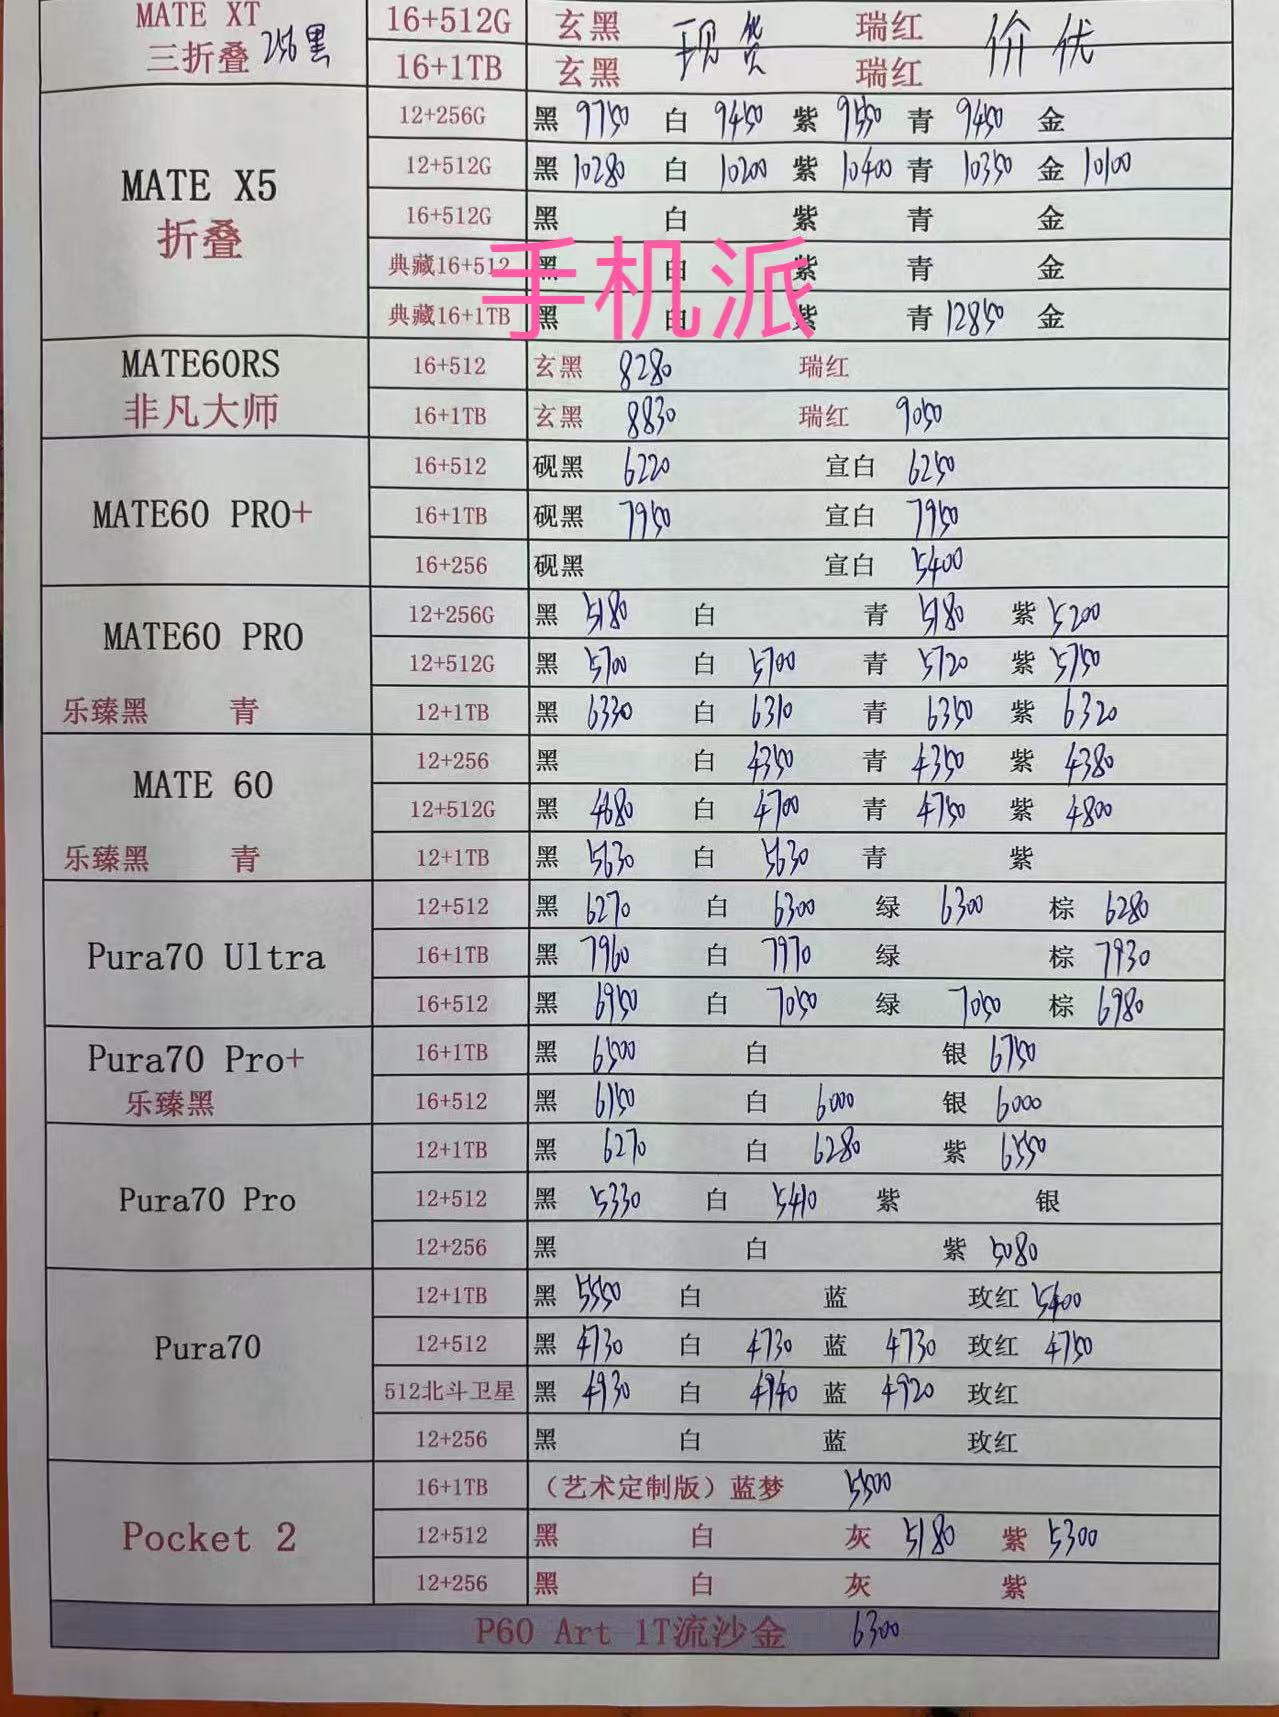 MATE XT 16+512G 玄黑 现货 瑞红 价优
三折叠 256黑 16+1TB 玄黑 瑞红
12+256G 黑 9750 白 9450 紫 9550 青 9450 金
MATE X5 12+512G 黑 10280 白 10200 紫 10400 青 10350 金 10100
折叠 16+512G 黑 白 紫 青 金
典藏16+512 黑 白 紫 青 金
手机派
典藏16+1TB 黑 白 紫 青 12850 金
MATE60RS 16+512 玄黑 8280 瑞红
非凡大师 16+1TB 玄黑 8830 瑞红 9050
16+512 砚黑 6220 宣白 6250
MATE60 PRO+ 16+1TB 砚黑 7950 宣白 7950
16+256 砚黑 宣白 5400
12+256G 黑 5180 白 青 5180 紫 5200
MATE60 PRO 12+512G 黑 5700 白 5700 青 5720 紫 5750
乐臻黑 青 12+1TB 黑 6330 白 6310 青 6350 紫 6320
12+256 黑 白 4350 青 4350 紫 4380
MATE 60 12+512G 黑 4680 白 4700 青 4750 紫 4800
乐臻黑 青 12+1TB 黑 5630 白 5630 青 紫
12+512 黑 6270 白 6300 绿 6300 棕 6280
Pura70 Ultra 16+1TB 黑 7960 白 7970 绿 棕 7930
16+512 黑 6950 白 7050 绿 7050 棕 6980
Pura70 Pro+ 16+1TB 黑 6500 白 银 6750
乐臻黑 16+512 黑 6150 白 6000 银 6000
12+1TB 黑 6270 白 6280 紫 6550
Pura70 Pro 12+512 黑 5330 白 5410 紫 银
12+256 黑 白 紫 5080
12+1TB 黑 5550 白 蓝 玫红 5400
Pura70 12+512 黑 4730 白 4730 蓝 4730 玫红 4750
512北斗卫星 黑 4930 白 4940 蓝 4920 玫红
12+256 黑 白 蓝 玫红
16+1TB (艺术定制版)蓝梦 5500
Pocket 2 12+512 黑 白 灰 5180 紫 5300
12+256 黑 白 灰 紫
P60 Art 1T流沙金 6300